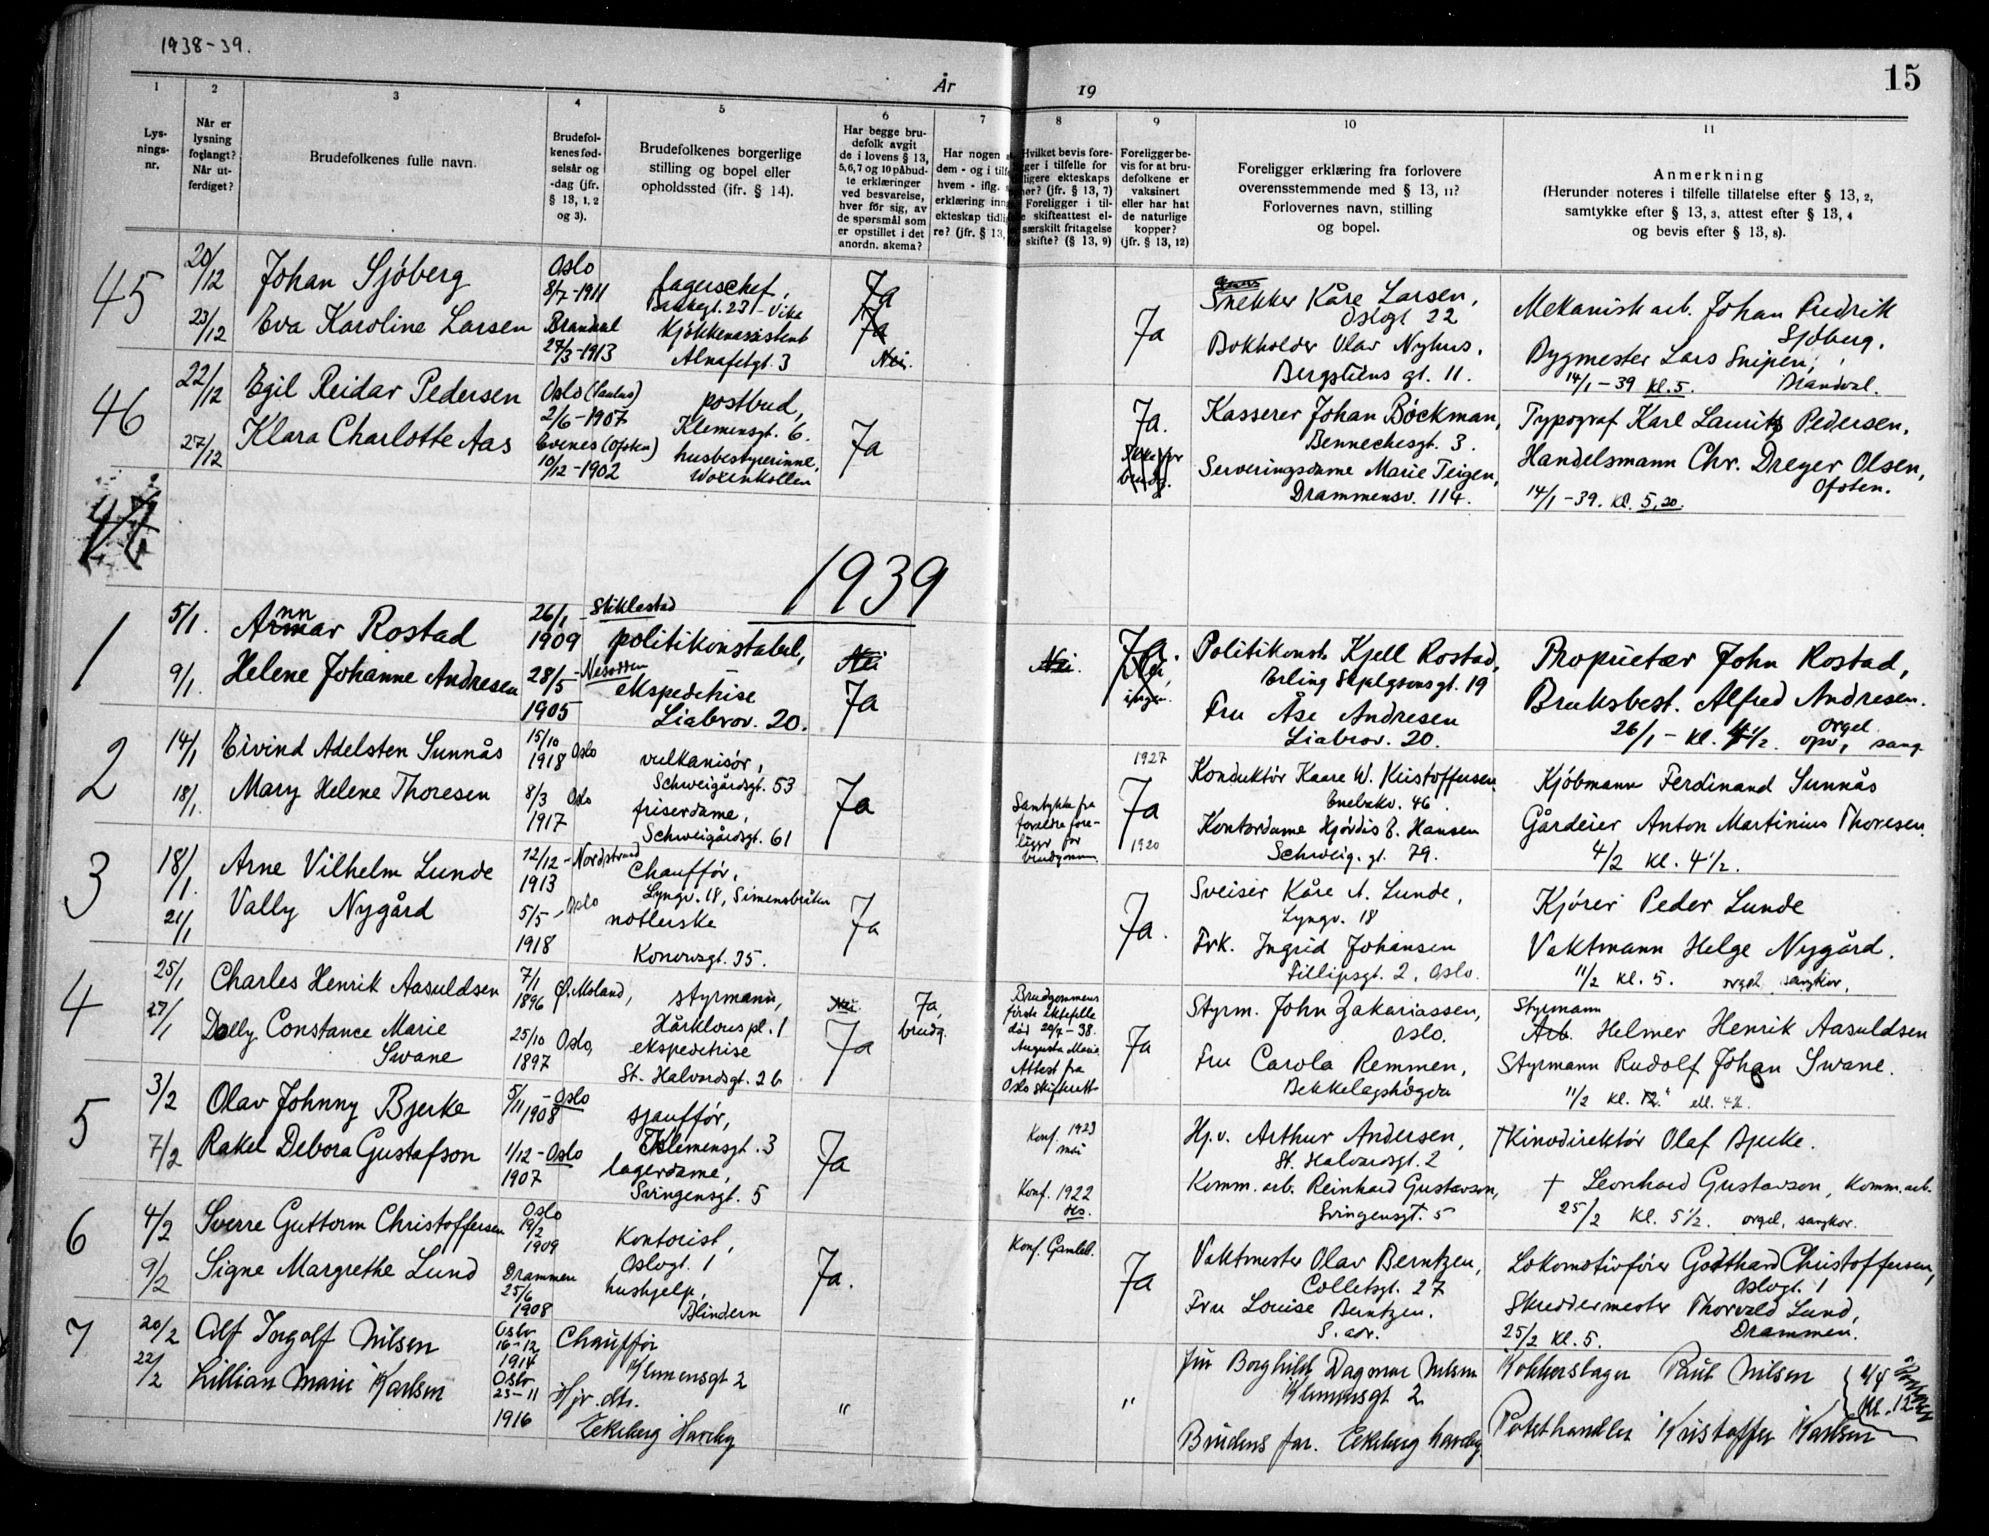 1938-39.
År
19
15
1
2
3
4
5
6
7
8
9
10
11
Lysningsnr.
Når er lysning forlangt? Når utferdiget?
Brudefolkenes fulle navn.
Brudefolkenes fødselsår og -dag (jfr. § 13, 1, 2 og 3).
Brudefolkenes borgerlige stilling og bopel eller opholdssted (jfr. § 14).
Har begge brudefolk avgit de i lovens § 13, 5, 6, 7 og 10 påbudte erklæringer ved besvarelse, hver for sig, av de spørsmål som er opstillet i det anordn. skema?
Har nogen
dem - og i tilf
hvem - iflg.
erklæring inng
ekteskap tidli
re? (jfr. § 13,
Hvilket bevis fore-
ger i tilfelle for
ligere ekteskaps
hør? (jfr. § 13, 7)
Foreligger i til-
le skifteattest el-
særskilt fritagelse
skifte? (§ 13, 9)
Foreligger bevis for at brudefolkene er vaksinert eller har hat de naturlige kopper? (jfr. § 13, 12)
Foreligger erklæring fra forlovere overensstemmende med § 13, 11? Forlovernes navn, stilling og bopel.
Anmerkning
(Herunder noteres i tilfelle tillatelse efter § 13, 2, samtykke efter § 13, 3, attest efter § 13, 4 og bevis efter § 13, 8).
45
20/12
Johan Sjöberg
Oslo
8/7-1911
lagerschef,
Bakkegt. 23 - Vika
Ja
Snekker Kåre Larsen,
Oslogt 22
Mekanisk arb. Johan Fredrik
Sjöberg.
23/12
Eva Karoline Larsen
Brandval
27/3-1913
Kjökkenassistent
Alnafetgt. 3
Ja
Nei.
Ja
Bokholder Olav Nyhus.
Bergsliens gt. 11.
Bygmester Lars Snipen,
Brandval.
14/1-39 kl. 5.
46
22/12
Egil Reidar Pedersen
Oslo (Paulus)
2/6-1907
postbud,
Klemensgt. 6.
Ja.
Kasserer Johan Böckman,
Bennechesgt. 3.
Typograf Karl Lauritz Pedersen.
27/12
Klara Charlotte Aas
Evenes (Ofoten)
10/12-1902
husbestyrerinne,
Voxenkollen
Ja
Ikke for
brudg.
Serveringsdame Marie Teigen,
Drammensv. 114.
Handelsmann Chr. Dreyer Olsen,
Ofoten.
14/1-39. kl. 5,20.
47
1939
1
5/1.
Annar Rostad
26/1 -
1909
Stiklestad
politikonstabel,
Nei
Nei.
Ja.
Politikonst. Kjell Rostad,
Erling Skjalgsonsgt. 19
Proprietær John Rostad,
9/1.
Helene Johanne Andresen
28/5 -
1905
Nesodden
ekspeditrise
Liabrov. 20.
Ja
Fru Åse Andresen
Liabrov. 20.
Bruksbest. Alfred Andresen.
26/1 - kl. 4 1/2. orgel
opv, sang
2
14/1
Eivind Adelsten Sunnås
15/10
1918
Oslo
vulkanisör,
Schweigårdsgt. 53
1927
Konduktör Kaare W. Kristoffersen
Enebakv. 46.
Kjöbmann Ferdinand Sunnås
18/1.
Mary Helene Thoresen
8/3
1917
Oslo
friserdame,
Schweigårdsgt. 61
Ja
Samtykke fra
foreldre fore-
ligger for
brudgommen
Ja
1920
Kontordame Hjördis E. Hansen
Schweig. gt. 79.
Gårdeier Anton Martinius Thoresen.
4/2 kl. 4 1/2.
3
18/1.
Arne Vilhelm Lunde
12/12 - Nordstrand
1913
Chauffør,
Lyngv. 18, Simensbråten
Sveiser Kåre A. Lunde,
Lyngv. 18
Kjörer Peder Lunde
21/1
Vally Nygård
5/5 - Oslo
1918
notlerske
Konowsgt. 35.
Ja
Ja.
Frk. Ingrid Johansen
Fillipsgt. 2, Oslo.
Vaktmann Helge Nygård.
11/2 kl. 5. orgel, sangkor.
4
25/1
Charles Henrik Aasuldsen
7/1
1896
Ø. Moland,
styrmann,
Hårklous pl. 1
Nei.
Ja,
brudg.
Brudgommens
første ektefelle
død 20/7-38.
Augusta Marie
Attest fra
Oslo skifterett
Styrm. John Zakariassen,
Oslo.
Styrmann
Arb. Helmer Henrik Aasuldsen
27/1
Dolly Constance Marie
Swane
25/10
1897
Oslo,
ekspeditrise
St. Halvardsgt. 26
Ja
Ja
Fru Carola Remmen,
Bekkelagshögda
Styrmann Rudolf Johan Swane.
11/2 kl. 12.
5
3/2
Olav Johnny Bjerke
5/11 - Oslo
1908
sjauffør,
Klemensgt. 3
Konf. 1923
mai
Hj.v. Arthur Andersen,
St. Halvardsgt. 2
†Kinodirektör Olaf Bjerke.
7/2
Rakel Debora Gustafson
1/12 - Oslo
1907
lagerdame,
Svingensgt. 5
Ja
Konf. 1922
des.
Komm. arb. Reinhard Gustavson,
Svingensgt. 5
† Leonhard Gustavson, Komm. arb.
25/2 kl. 5 1/2. orgel, sangkor.
6
4/2
Sverre Guttorm Christoffersen
Oslo
19/2
1909
Kontorist,
Oslogt. 1
Konf. Gamleb.
Vaktmester Olav Berntzen,
Colletsgt. 27
Lokomotivfører Gotthard Christoffersen,
Oslogt. 1
9/2
Signe Margrethe Lund
Drammen
25/6
1908
hushjelp,
Blindern
Ja.
Ja
Fru Louise Berntzen.
S. adr.
Skreddermester Thorvald Lund,
Drammen.
25/2 kl. 5.
7
20/2
Alf Ingolf Nilsen
Oslo
16-12
1914
Chauffør
Klemensgt 2
Fru Borghild Dagmar Nilsen
Klemensgt 2
Kobberslager Paul Nilsen
22/2
Lillian Marie Karlsen
Oslo
23-11
1916
Hjv. dtr.
Ekeberg Haveby
"
"
Brudens far. Ekeberg haveby
Potethandler Kristoffer Karlsen
kl. 12